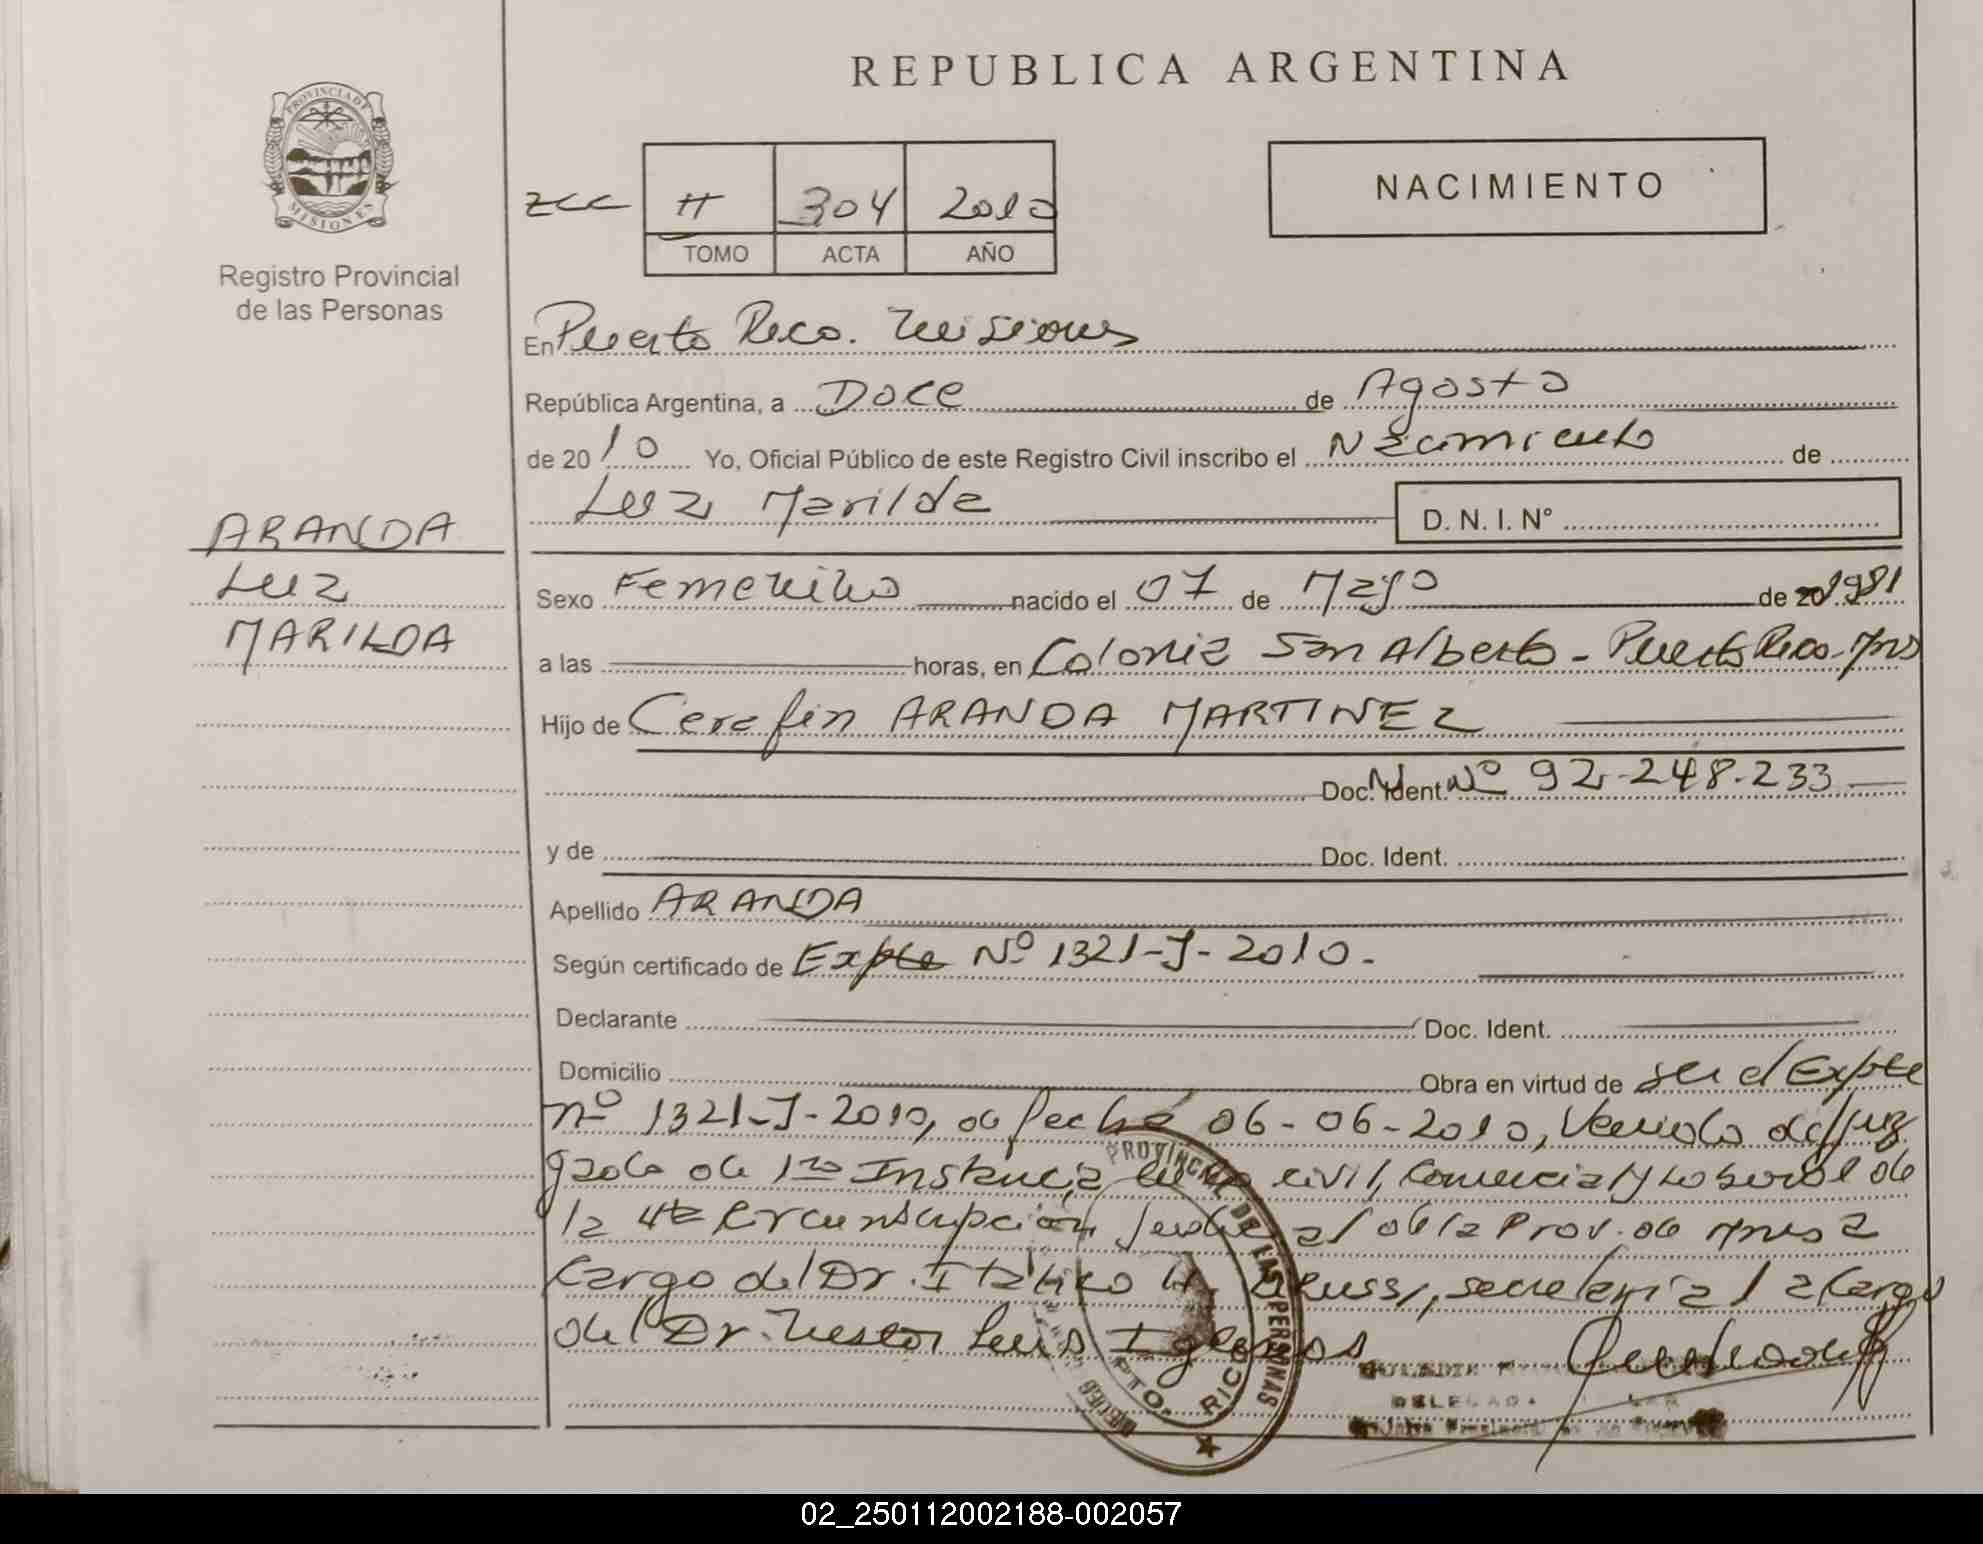 REPUBLICA ARGENTINA
PROVINCIA DE MISIONES
Registro Provincial
de las Personas
NACIMIENTO
II 304 2010
TOMO ACTA AÑO
En Puerto Rico. Misiones
República Argentina, a Doce de Agosto
de 2010 Yo, Oficial Público de este Registro Civil inscribo el Nacimiento de
Luz Marilda D. N. I. Nº
ARANDA
LUZ
MARILDA
Sexo Femenino nacido el 07 de Mayo de 20 1981
a las horas, en Colonia San Alberto - Puerto Rico - Mnes
Hijo de Cerefin ARANDA MARTINEZ
Doc. Ident. Nº 92-248-233
y de Doc. Ident.
Apellido ARANDA
Según certificado de Expte Nº 1321-J-2010.-
Declarante Doc. Ident.
Domicilio Obra en virtud de ser el Expte
nº 1321-J-2010, de fecha 06-06-2010, Venido del Juz
gado de 1ra Instancia en lo civil, Comercial y Laboral de
la 4ta Circunscripción Judicial de la Prov. de Mnes a
Cargo del Dr. H. secretaria 1 a Cargo
del Dr. Nestor Luis Iglesias
PROVINCIAL DE LAS PERSONAS
PTO. RICO
DELEGADA
02_250112002188-002057